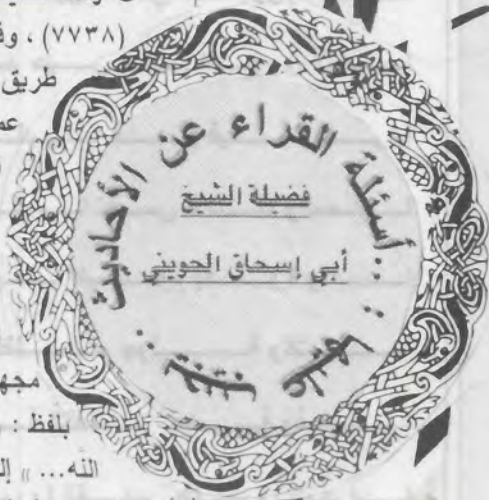 (٧٧٣٨) ، وف
طريق
عم
أسئلة القراء عن الأحاديث
فضيلة الشيخ
أبي إسحاق الحويني
مجه
بلفظ :
الله... » إل